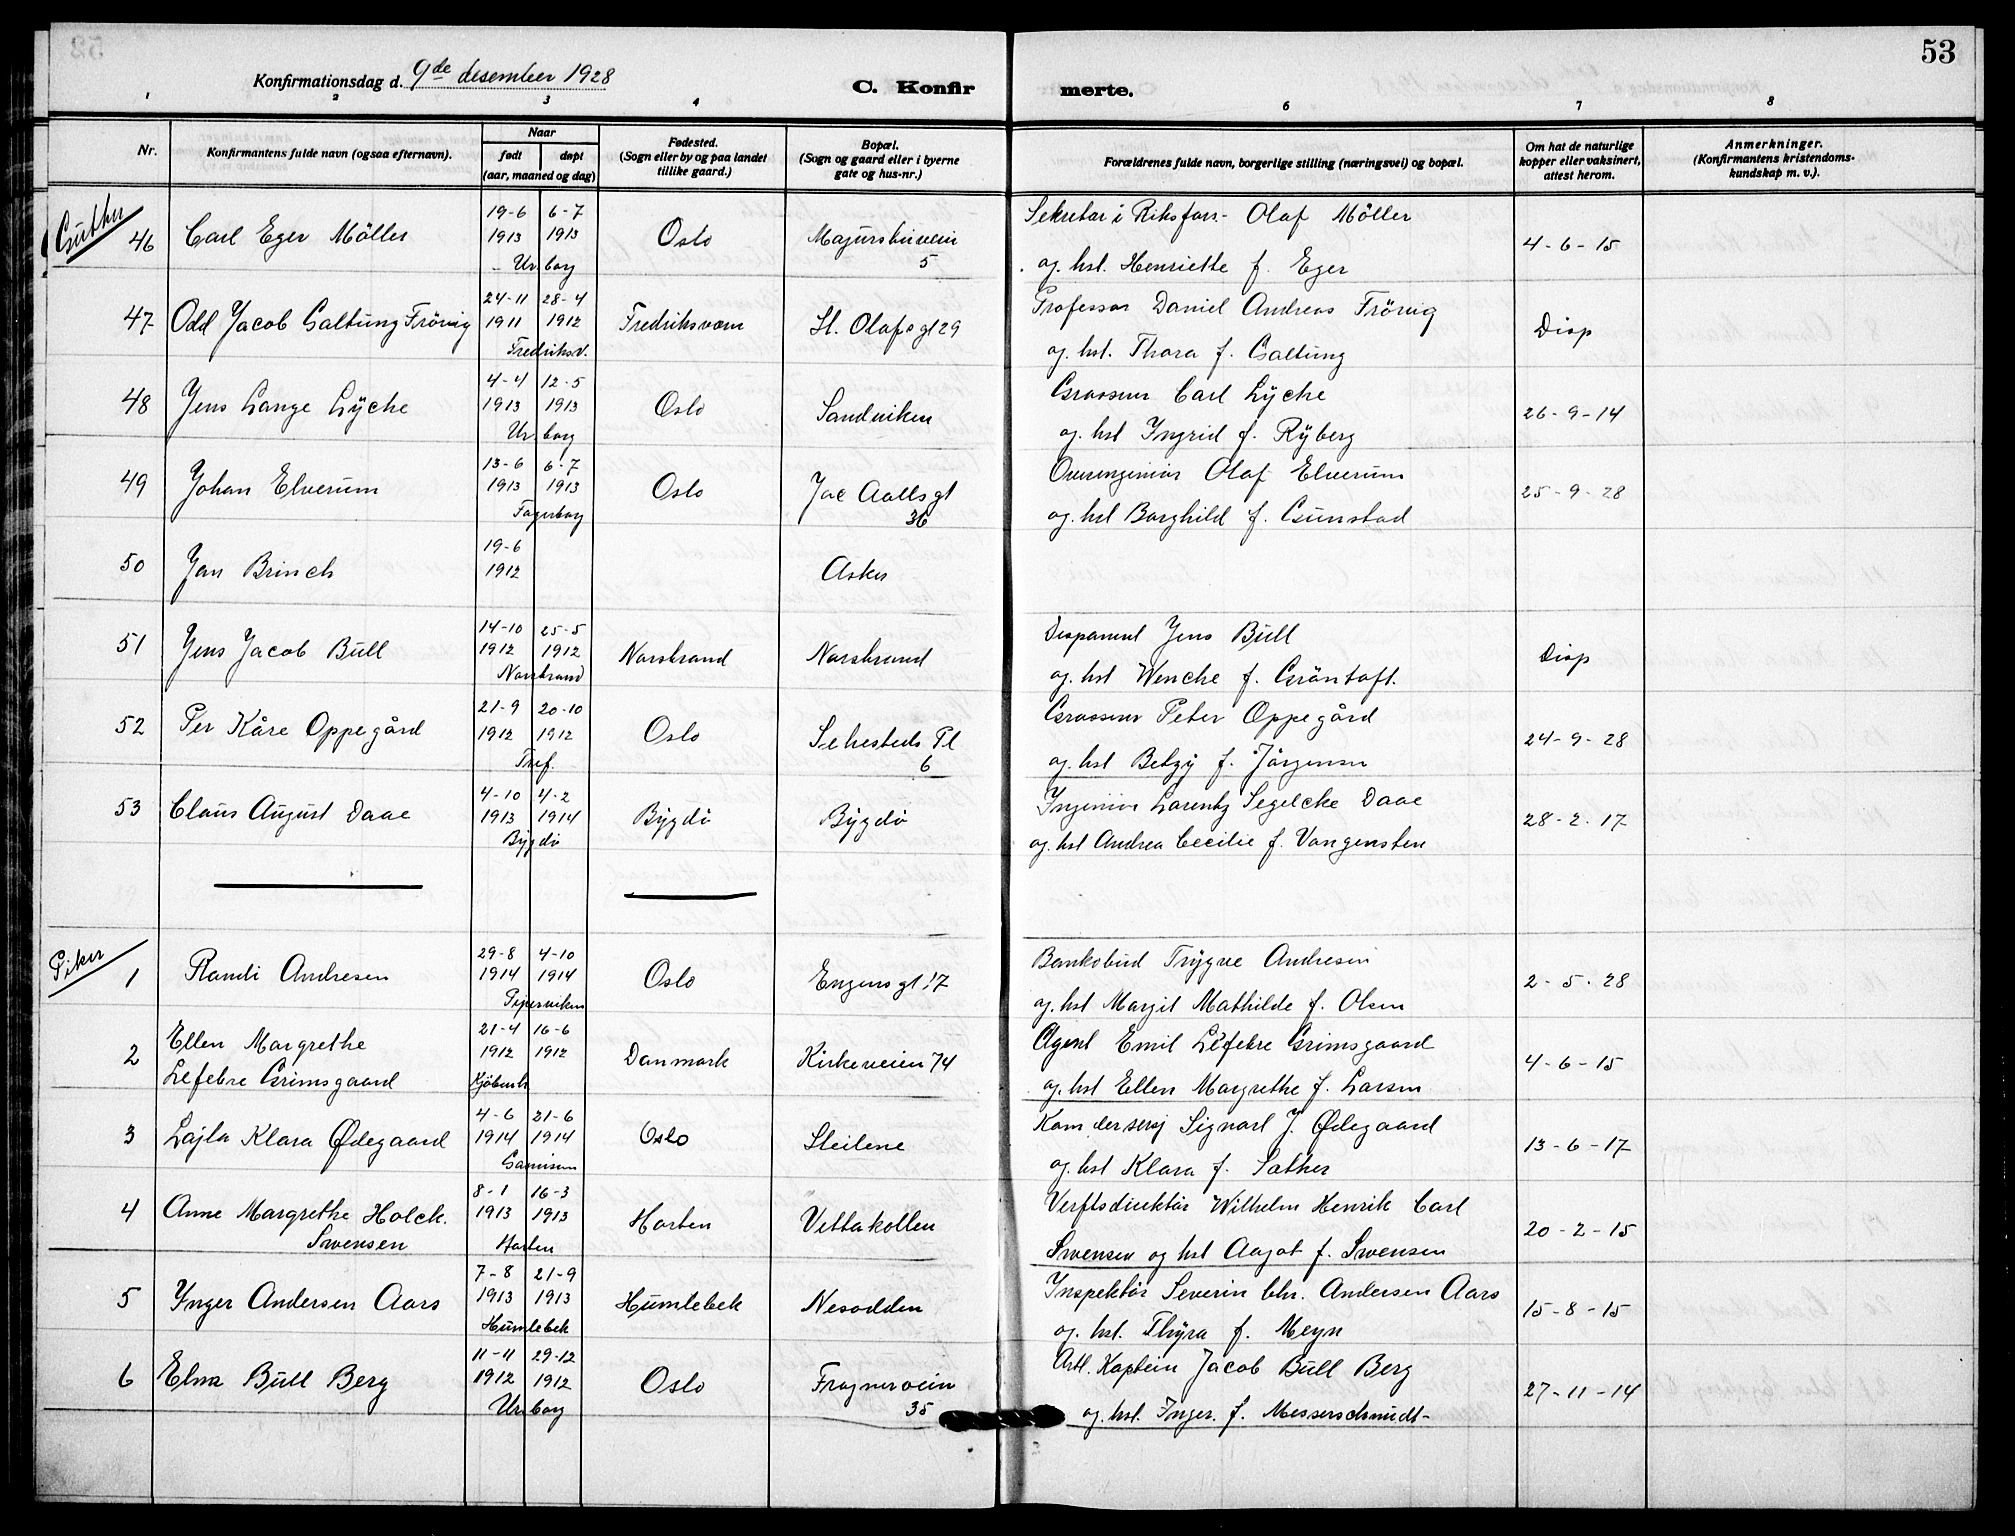 53
Konfirmationsdag d. 9de desember 1928
C. Konfirmerte.
1 2 3 4 6 7 8
Nr.
Konfirmantens fulde navn (ogsaa efternavn).
Naar
født døpt
(aar, maaned og dag)
Fødested.
(Sogn eller by og paa landet
tillike gaard.)
Bopæl.
(Sogn og gaard eller i byerne
gate og hus-nr.)
Forældrenes fulde navn, borgerlige stilling (næringsvei) og bopæl.
Om hat de naturlige
kopper eller vaksinert,
attest herom.
Anmerkninger.
(Konfirmantens kristendoms-
kundskap m. v.).
Gutter
46 Carl Eger Möller 19-6 1913 6-7 1913 Ur.borg Oslo 5
Olaf Möller
og hst. Henriette f. Eger 4-6-15
47 Odd Jacob Galtung Frövig 24-11 1911 28-4 1912 Fredriksv. Fredriksværn St. Olafsgt 29
Professor Daniel Andreas Frövig
og hst. Thora f. Galtung Disp
48 Jens Lange Lÿche 4-4 1913 12-5 1913 Ur.borg Oslo Sandviken
Grosserer Carl Lÿche
og hst Ingrid f. Rÿberg 26-9-14
49 Johan Elverum 13-6 1913 6-7 1913 Fagerborg Oslo Jac Aallsgt 36
Overingeniør Olaf Elverum
og hst Borghild f. Gunstad 25-9-28
50 Jan Brinch 19-6 1912 Asker
51 Jens Jacob Bull 14-10 1912 25-5 1912 Norstrand Norstrand Norstrand
Jens Bull
og hst Wenche f. Gröntoft. Disp
52 Per Kåre Oppegård 21-9 1912 20-10 1912 Tref. Oslo Sehesteds Pl 6
Grosserer Peter Oppegård
og hst Betzy f. Jörgensen 24-9-28
53 Claus August Daae 4-10 1913 4-2 1914 Bygdö Bÿgdö Bÿgdö
Ingeniør Lorentz Segelcke Daae
og hst Andrea Cecilie f. Vangensten 28-2-17
Piker
1 Randi Andresen 29-8 1914 4-10 1914 Piperviken Oslo Engensgt 17
Bankobud Trÿgve Andresen
og hst Margit Mathilde f. Olsen 2-5-28
2 Ellen Margrethe
Lefebre Grimsgaard 21-4 1912 16-6 1912 Kjöbenh. Danmark Kirkeveien 74
Agent Emil Léfebre Grimsgaard
og hst Ellen Margrethe f. Larsen 4-6-15
3 Lajla Klara Ødegaard 4-6 1914 21-6 1914 Garnison Oslo Steilene
Signart J. Ødegaard
og hst Klara f. Sather 13-6-17
4 Anne Margrethe Holck.
Swensen 8-1 1913 16-3 1913 Horten Horten Vettakollen
Verftsdirektör Wilhelm Henrik Carl
Swensen og hst Aagot f. Swensen 20-2-15
5 Ynger Andersen Aars 7-8 1913 21-9 1913 Humlebek Humlebek Nesodden
Inspektör Severin Chr. Andersen Aars
og hst. Thÿra f. Meyn 15-8-15
6 Elna Bull Berg 11-11 1912 29-12 1912 Ur.borg Oslo Frognerveien 35
Artl. Kaptein Jacob Bull Berg
og hst. Inger f. Messerschmidt- 27-11-14